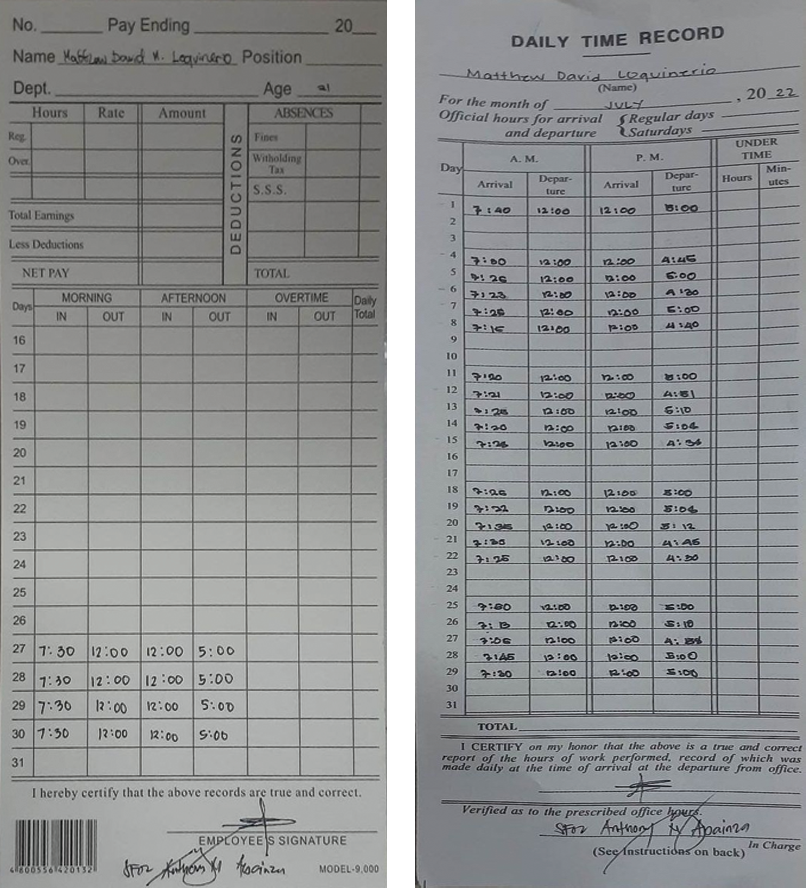 No. ______ Pay Ending ______ 20__
Name Matthew David M. Loquinerio Position ______
Dept. ______ Age 21
Hours Rate Amount DEDUCTIONS ABSENCES
Reg. Fines
Over. Witholding Tax
S.S.S.
Total Earnings
Less Deductions
NET PAY TOTAL
Days MORNING AFTERNOON OVERTIME Daily Total
IN OUT IN OUT IN OUT
16
17
18
19
20
21
22
23
24
25
26
27 7:30 12:00 12:00 5:00
28 7:30 12:00 12:00 5:00
29 7:30 12:00 12:00 5:00
30 7:30 12:00 12:00 5:00
31
I hereby certify that the above records are true and correct.
EMPLOYEE'S SIGNATURE
SFO2 Anthony M Apainza
4 800556 420132
MODEL-9,000
DAILY TIME RECORD
Matthew David Loquinerio
(Name)
For the month of JULY, 20 22
Official hours for arrival and departure Regular days
Saturdays
Day A. M. P. M. UNDER TIME
Arrival Departure Arrival Departure Hours Minutes
1 7:40 12:00 12:00 5:00
2
3
4 7:00 12:00 12:00 4:45
5 7:26 12:00 12:00 5:00
6 7:23 12:00 12:00 4:30
7 7:25 12:00 12:00 5:00
8 7:15 12:00 12:00 4:40
9
10
11 7:20 12:00 12:00 5:00
12 7:21 12:00 12:00 4:51
13 12:00 12:00 5:10
14 7:20 12:00 12:00 5:04
15 12:00 12:00
16
17
18 12:00 12:00 5:00
19 7:22 12:00 12:00
20 7:35 12:00 12:00 5:12
21 12:00 12:00 4:45
22 7:25 12:00 12:00
23
24
25 12:00 12:00 5:00
26 7:13 12:00 12:00 5:10
27 12:00 12:00
28 7:45 12:00 12:00 5:00
29 7:20 12:00 12:00 5:00
30
31
TOTAL
I CERTIFY on my honor that the above is a true and correct
report of the hours of work performed, record of which was
made daily at the time of arrival at the departure from office.
Verified as to the prescribed office hours.
SFO2 Anthony M Apainza
In Charge
(See Instructions on back)